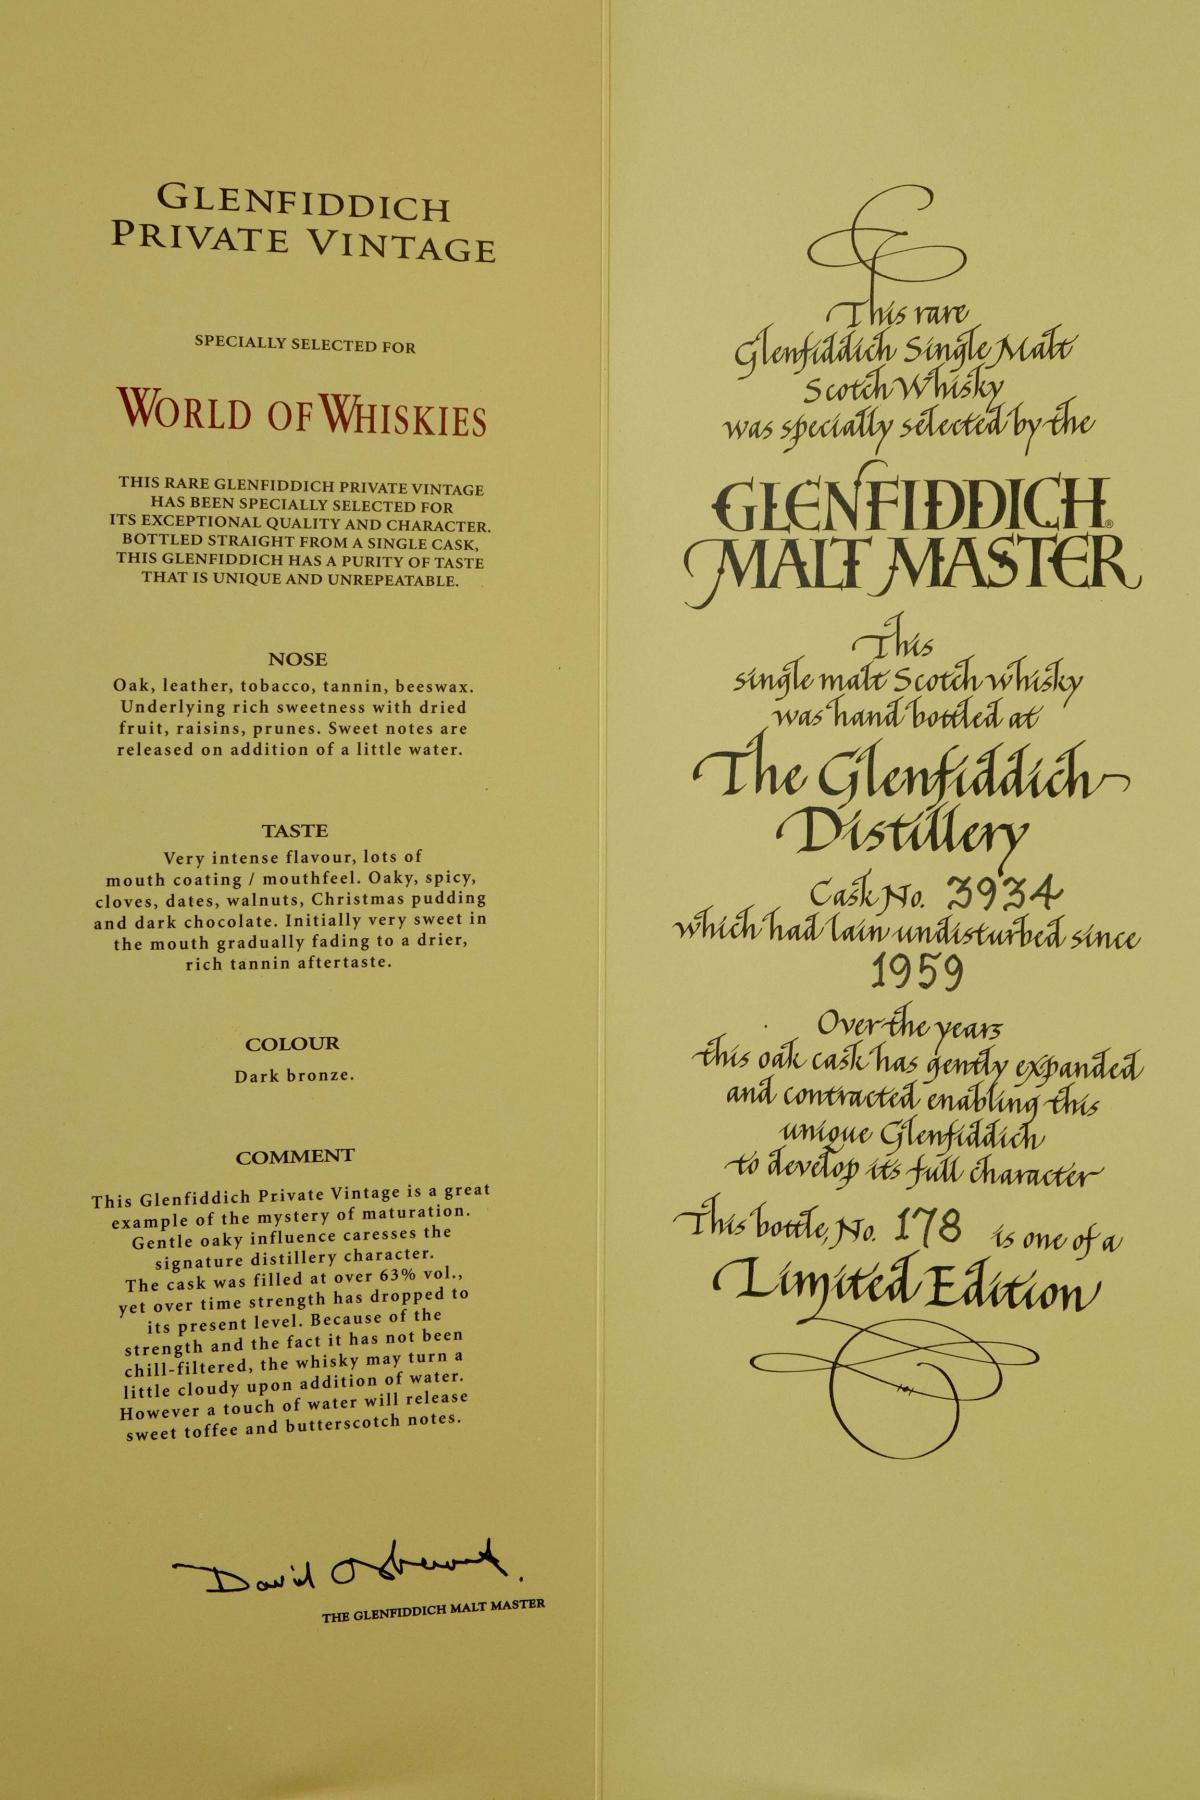 GLENFIDDICH
PRIVATE VINTAGE
SPECIALLY SELECTED FOR
WORLD OF WHISKIES
THIS RARE GLENFIDDICH PRIVATE VINTAGE
HAS BEEN SPECIALLY SELECTED FOR
ITS EXCEPTIONAL QUALITY AND CHARACTER.
BOTTLED STRAIGHT FROM A SINGLE CASK,
THIS GLENFIDDICH HAS A PURITY OF TASTE
THAT IS UNIQUE AND UNREPEATABLE.
NOSE
Oak, leather, tobacco, tannin, beeswax.
Underlying rich sweetness with dried
fruit, raisins, prunes. Sweet notes are
released on addition of a little water.
TASTE
Very intense flavour, lots of
mouth coating / mouthfeel. Oaky, spicy,
cloves, dates, walnuts, Christmas pudding
and dark chocolate. Initially very sweet in
the mouth gradually fading to a drier,
rich tannin aftertaste.
COLOUR
Dark bronze.
COMMENT
This Glenfiddich Private Vintage is a great
example of the mystery of maturation.
Gentle oaky influence caresses the
signature distillery character.
The cask was filled at over 63% vol.,
yet over time strength has dropped to
its present level. Because of the
strength and the fact it has not been
chill-filtered, the whisky may turn a
little cloudy upon addition of water.
However a touch of water will release
sweet toffee and butterscotch notes.
David
THE GLENFIDDICH MALT MASTER
This rare
Glenfiddich Single Malt
Scotch Whisky
was specially selected by the
GLENFIDDICH®
MALT MASTER
This
single malt Scotch whisky
was hand bottled at
The Glenfiddich
Distillery
Cask No. 3934
which had lain undisturbed since
1959
Over the years
this oak cask has gently expanded
and contracted enabling this
unique Glenfiddich
to develop its full character
This bottle, No. 178 is one of a
Limited Edition